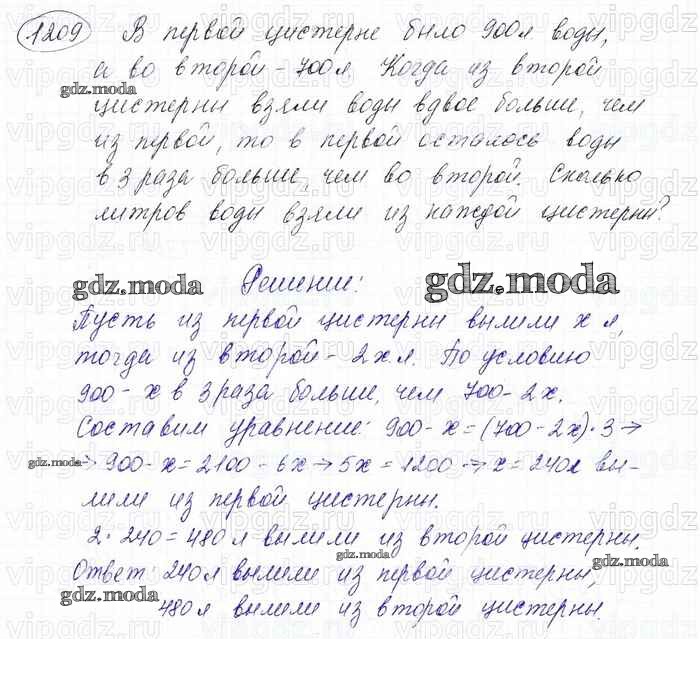 1209 В первой цистерне было 900л воды,
а во второй - 700л. Когда из второй
gdz.moda
цистерны взяли воды вдвое больше, чем
из первой, то в первой осталось воды
в 3 раза больше, чем во второй. Сколько
литров воды взяли из каждой цистерны?
gdz.moda Решение: gdz.moda
Пусть из первой цистерны вылили x л,
тогда из второй - 2x л. По условию
900 - x в 3 раза больше, чем 700 - 2x.
Составим уравнение: 900 - x = (700 - 2x) · 3 →
gdz.moda → 900 - x = 2100 - 6x → 5x = 1200 → x = 240л вы-
лили из первой цистерны.
2 · 240 = 480 л вылили из второй цистерны.
gdz.moda
Ответ: 240л вылили из первой цистерны,
gdz.moda
gdz.moda
480л вылили из второй цистерны.